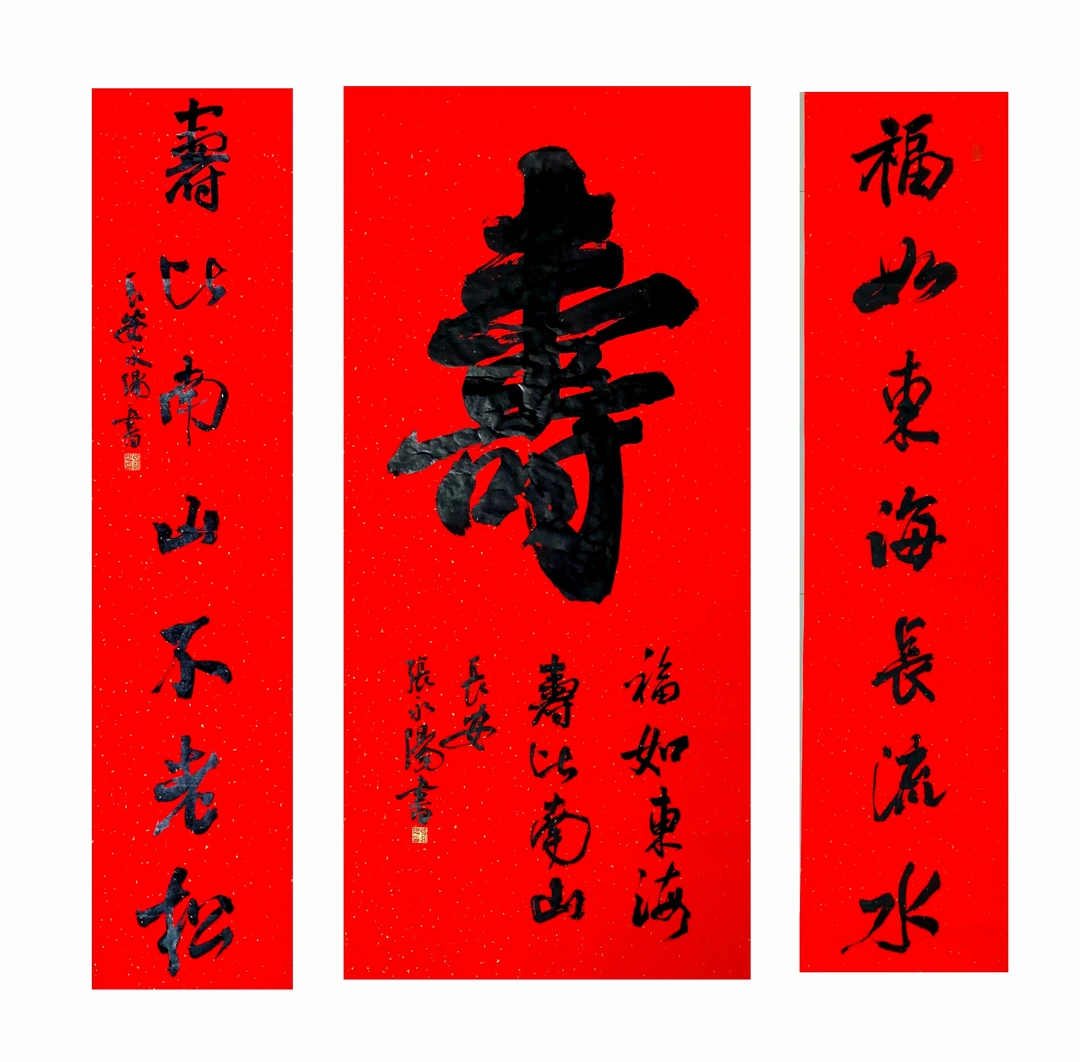 福如東海長流水
壽
福如東海
壽比南山
長安
張永陽書
壽比南山不老松
長安永陽書